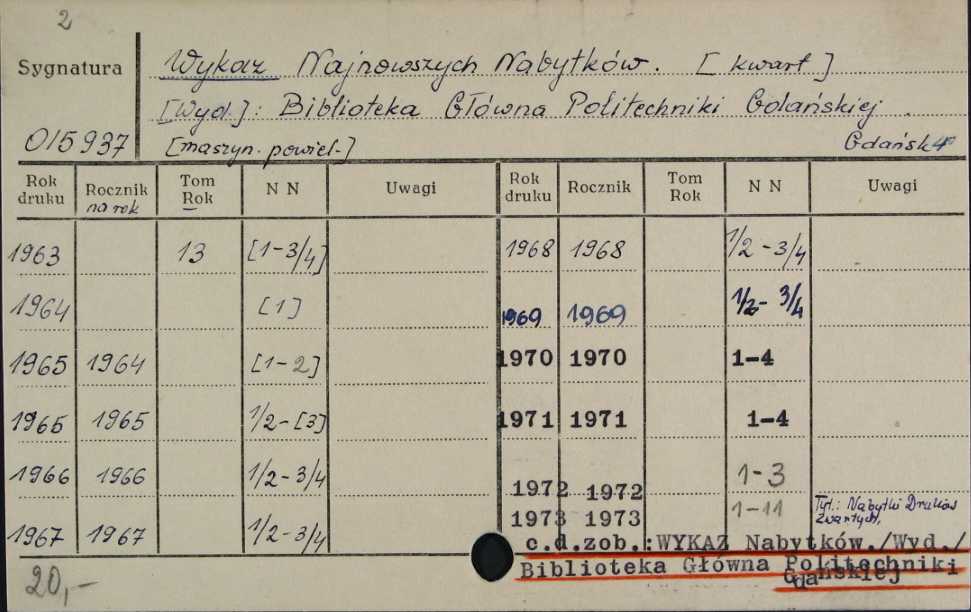 2
Sygnatura
Wykaz Najnowszych Nabytków. [kwart]
[Wyd.]: Biblioteka Główna Politechniki Gdańskiej.
015937 [maszyn. powiel.] Gdańsk 4°
Rok druku Rocznik na rok Tom Rok N N Uwagi Rok druku Rocznik Tom Rok N N Uwagi
1963 13 [1-3/4] 1968 1968 1/2-3/4
1964 [1] 1969 1969 1/2-3/4
1965 1964 [1-2] 1970 1970 1-4
1965 1965 1/2-[3] 1971 1971 1-4
1966 1966 1/2-3/4 1972 1972 1-3
1967 1967 1/2-3/4 1973 1973 1-11 Tyt.: Nabytki Druków Zwartych.
c.d.zob.:WYKAZ Nabytków./Wyd./
Biblioteka Główna Politechniki
Gdańskiej
20,-